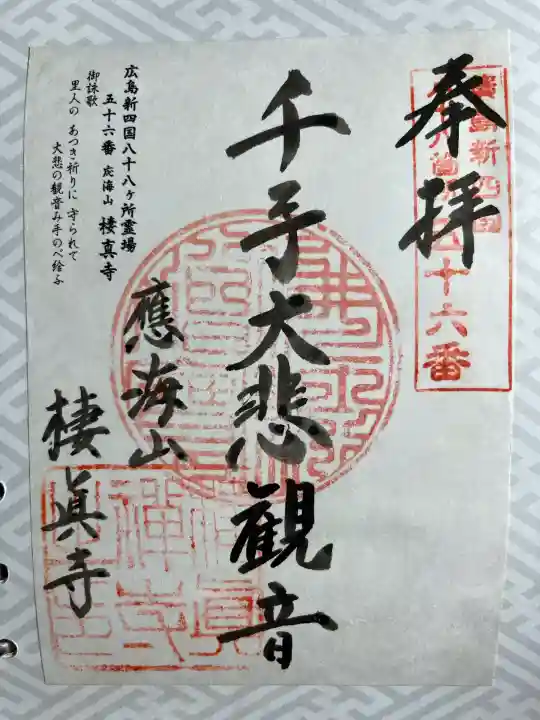 奉拝
廣島新四国
五十六番
千手大悲観音
應海山
棲眞寺
広島新四国八十八ヶ所霊場
五十六番 応海山 棲真寺
御詠歌
里人の あつき祈りに 守られて
大悲の観音み手のべ給ふ